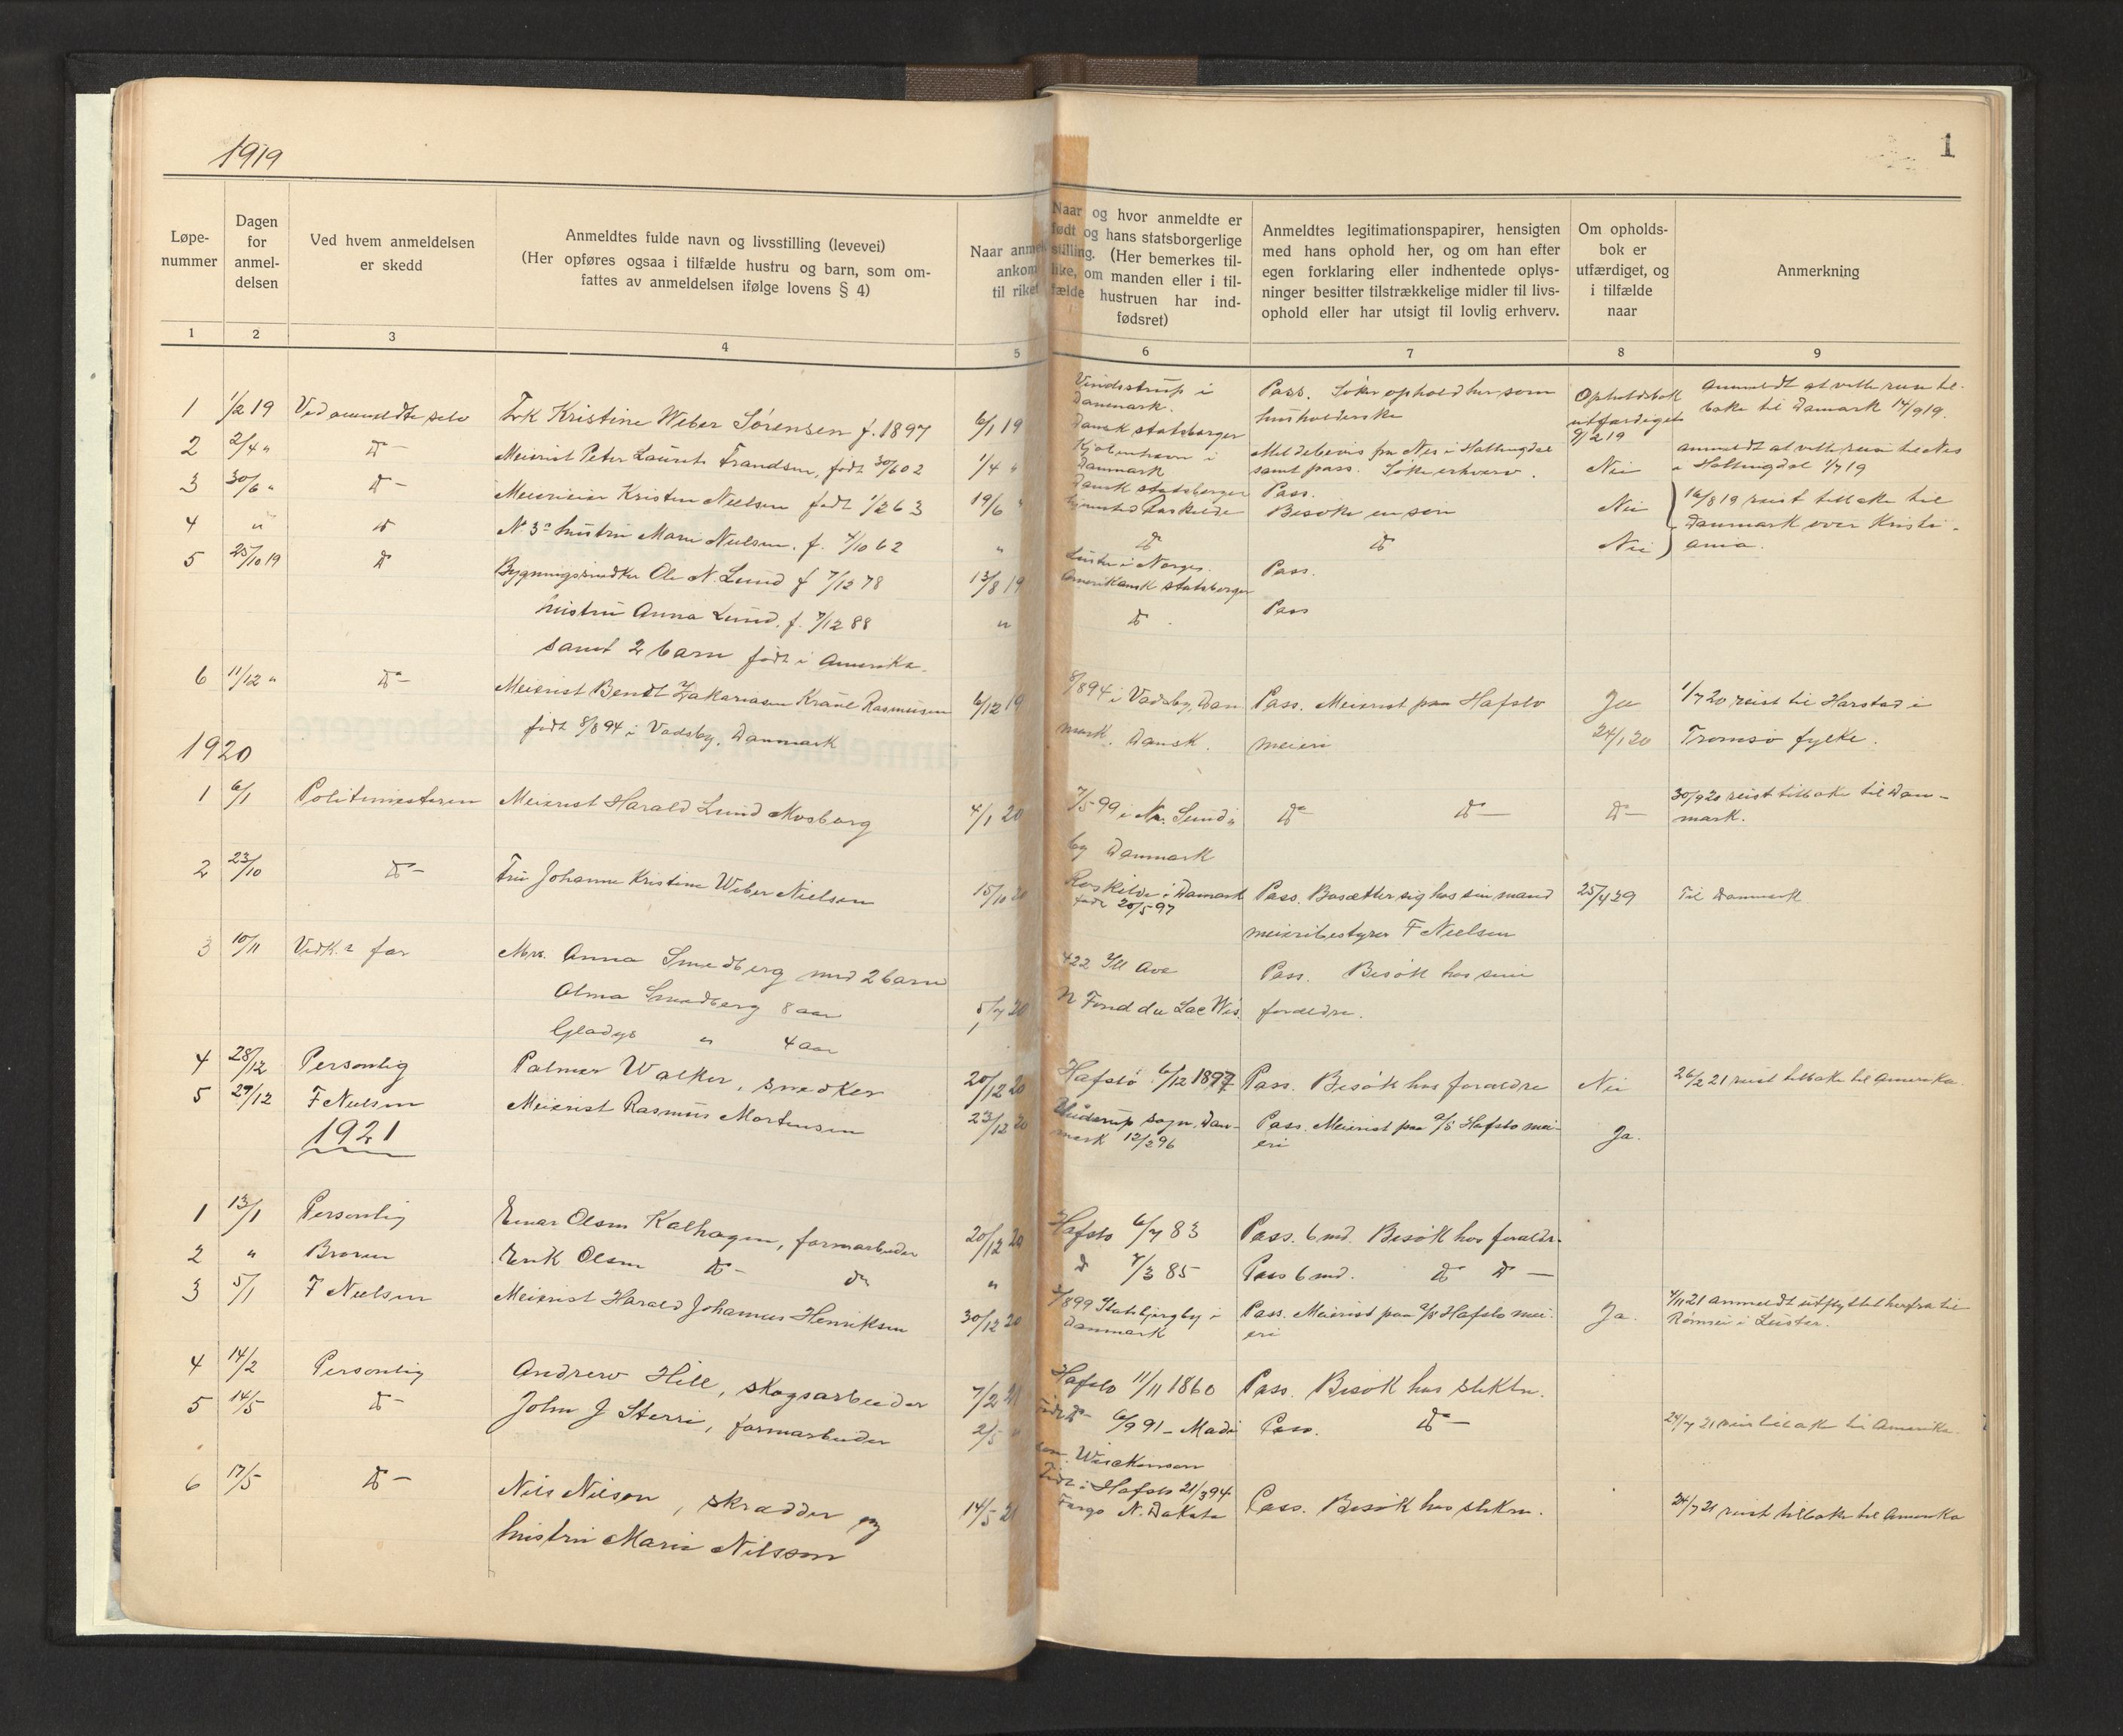 1919
1
Løpe-
nummer
Dagen
for
anmel-
delsen
Ved hvem anmeldelsen
er skedd
Anmeldtes fulde navn og livsstilling (levevei)
(Her opføres ogsaa i tilfælde hustru og barn, som om-
fattes av anmeldelsen ifølge lovens § 4)
Naar anme
ankom
til riket
Naar og hvor anmeldte er
født og hans statsborgerlige
stilling. (Her bemerkes til-
like, om manden eller i til-
fælde hustruen har ind-
fødsret)
Anmeldtes legitimationspapirer, hensigten
med hans ophold her, og om han efter
egen forklaring eller indhentede oplys-
ninger besitter tilstrækkelige midler til livs-
ophold eller har utsigt til lovlig erhverv.
Om opholds-
bok er
utfærdiget, og
i tilfælde
naar
Anmerkning
1 2 3 4 5 6 7 8 9
1 1/2 19 Ved anmeldte selv Frk Kristine Weber Sörensen f. 1897 6/1 19
Vindstrup i
Danmark.
Dansk statsborger
Pass. Söker ophold her som
husholderske
Opholdsbok
utfærdiget
9/2 19
Anmeldt at ville reise til-
bake til Danmark 14/9 19.
2 2/4 " do - Meierist Peter Laurits Frandsen, født 30/6 02 1/4 "
Kjøbenhavn i
Danmark
Dansk statsborger
Meldebevis fra Nes i Hallingdal
samt pass. Söke erhverv.
Nei
anmeldt at ville reise til Nes
i Hallingdal 1/7 19
3 30/6 " do - Meierieier Kristen Nielsen født 1/2 63 19/6 "
Roskilde
Pass.
Besöke en sön
Nei
16/8 19 reist tilbake til
Danmark over Kristi-
ania.
4 " do No 3s hustru Maren Nielsen. f. 4/10 62 "
do do Nei
5 25/10 19 do Bygningssnedker Ole N. Lund f 7/12 78 13/8 19
Luster i Norge.
Amerikansk statsborger
Pass.
hustru Anna Lund. f. 7/12 88 " do. Pass
samt 2 barn født i Amerika.
6 11/12 " do - Meierist Bendt Zakariasen Kraul Rasmussen 6/12 19
født 8/8 94 i Vadsby, Danmark
8/8 94 i Vadsby, Dan
mark. Dansk.
Pass. Meierist paa Hafslo
meieri
Ja
24/1 20
1/7 20 reist til Harstad i
Tromsö fylke.
1920
1 6/1 Politimesteren Meierist Harald Lund Mosborg 4/1 20
7/5 99 i Nr. Sund-
by Danmark
do - do - do -
30/9 20 reist tilbake til Dan-
mark.
2 23/10 do - Fru Johanne Kristine Weber Nielsen 15/10 20
Roskilde i Danmark
født 20/5 97
Pass. Bosætter sig hos sin mand
meieribestyrer F Nielsen
25/4 29
Til Danmark
3 10/11 Vedk.s far Mrs. Anna Smedberg med 2 barn
Alma Smedberg 8 aar 5/7 20
Gladys " 4 aar
422 Ill Ave
N Fond du Lac Wis.
Pass. Besök hos sine
forældre.
4 28/12 Personlig Palmer Walker, snedker 20/12 20
Hafslo 6/12 1897 Pass. Besök hos forældre Nei 26/2 21 reist tilbake til Amerika.
5 29/12 F Nielsen Meierist Rasmus Mortensen 23/12 20
sogn, Dan-
mark 12/2 96
Pass. Meierist paa a/s Hafslo mei-
eri
Ja.
1921
1 13/1 Personlig Einar Olsen Kalhagen, farmarbeider 20/12 20
Hafslo 6/7 83 Pass. 6 md. Besök hos forældr.
2 " Broren Erik Olsen do - do "
do 7/3 85 Pass 6 md. do do -
3 5/1 F Nielsen Meierist Harald Johannes Henriksen 30/12 20
3/8 99 i
Danmark
Pass. Meierist paa a/s Hafslo mei-
eri
Ja.
4/11 21 anmeldt utflyttet herfra til
i Luster.
4 14/2 Personlig Andrew Hill, skogsarbeider 7/2 21
Hafslo 11/11 1860 Pass. Besök hos slektn.
5 14/5 do - John J Sterri, farmarbeider 2/5 "
Født do - 6/9 91 - Madi
son. Wisckonsen
Pass. do -
24/7 21 reist tilbake til Amerika.
6 17/5 do - Nils Nilson, skrædder og 14/5 21
hustru Marie Nilsson
Født i Hafslo 21/3 94
Fargo N. Dakota
Pass. Besök hos slektn.
24/7 21 reist tilbake til Amerika